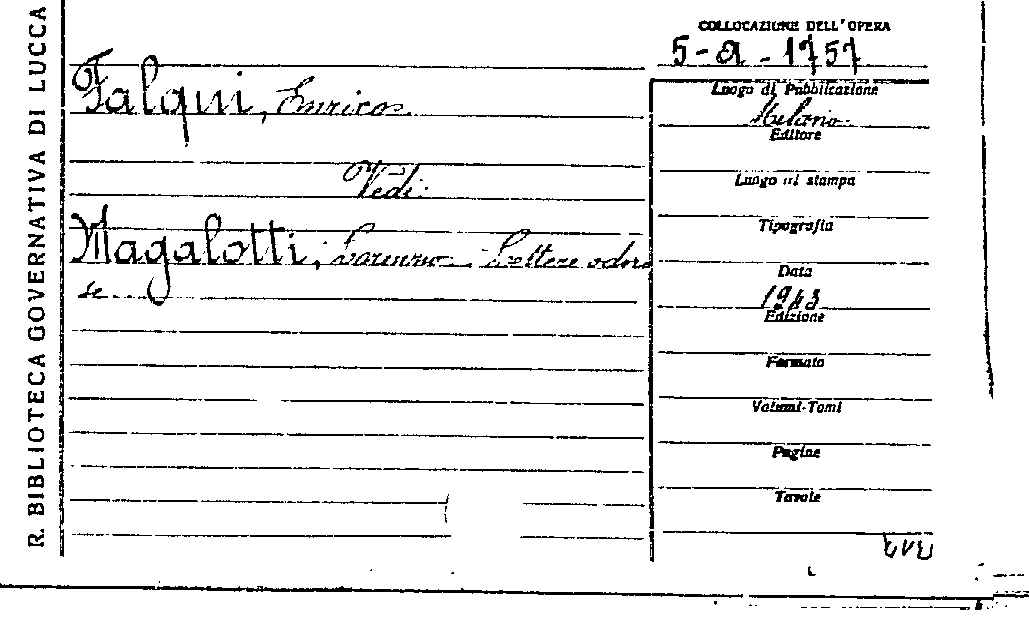 R. BIBLIOTECA GOVERNATIVA DI LUCCA
COLLOCAZIONE DELL'OPERA
5-a-1757
Falqui, Enrico
Vedi:
Magalotti, Lorenzo. Lettere odoro
se
Luogo di Pubblicazione
Milano
Editore
Luogo di stampa
Tipografia
Data
1943
Edizione
Formato
Volumi-Tomi
Pagine
Tavole